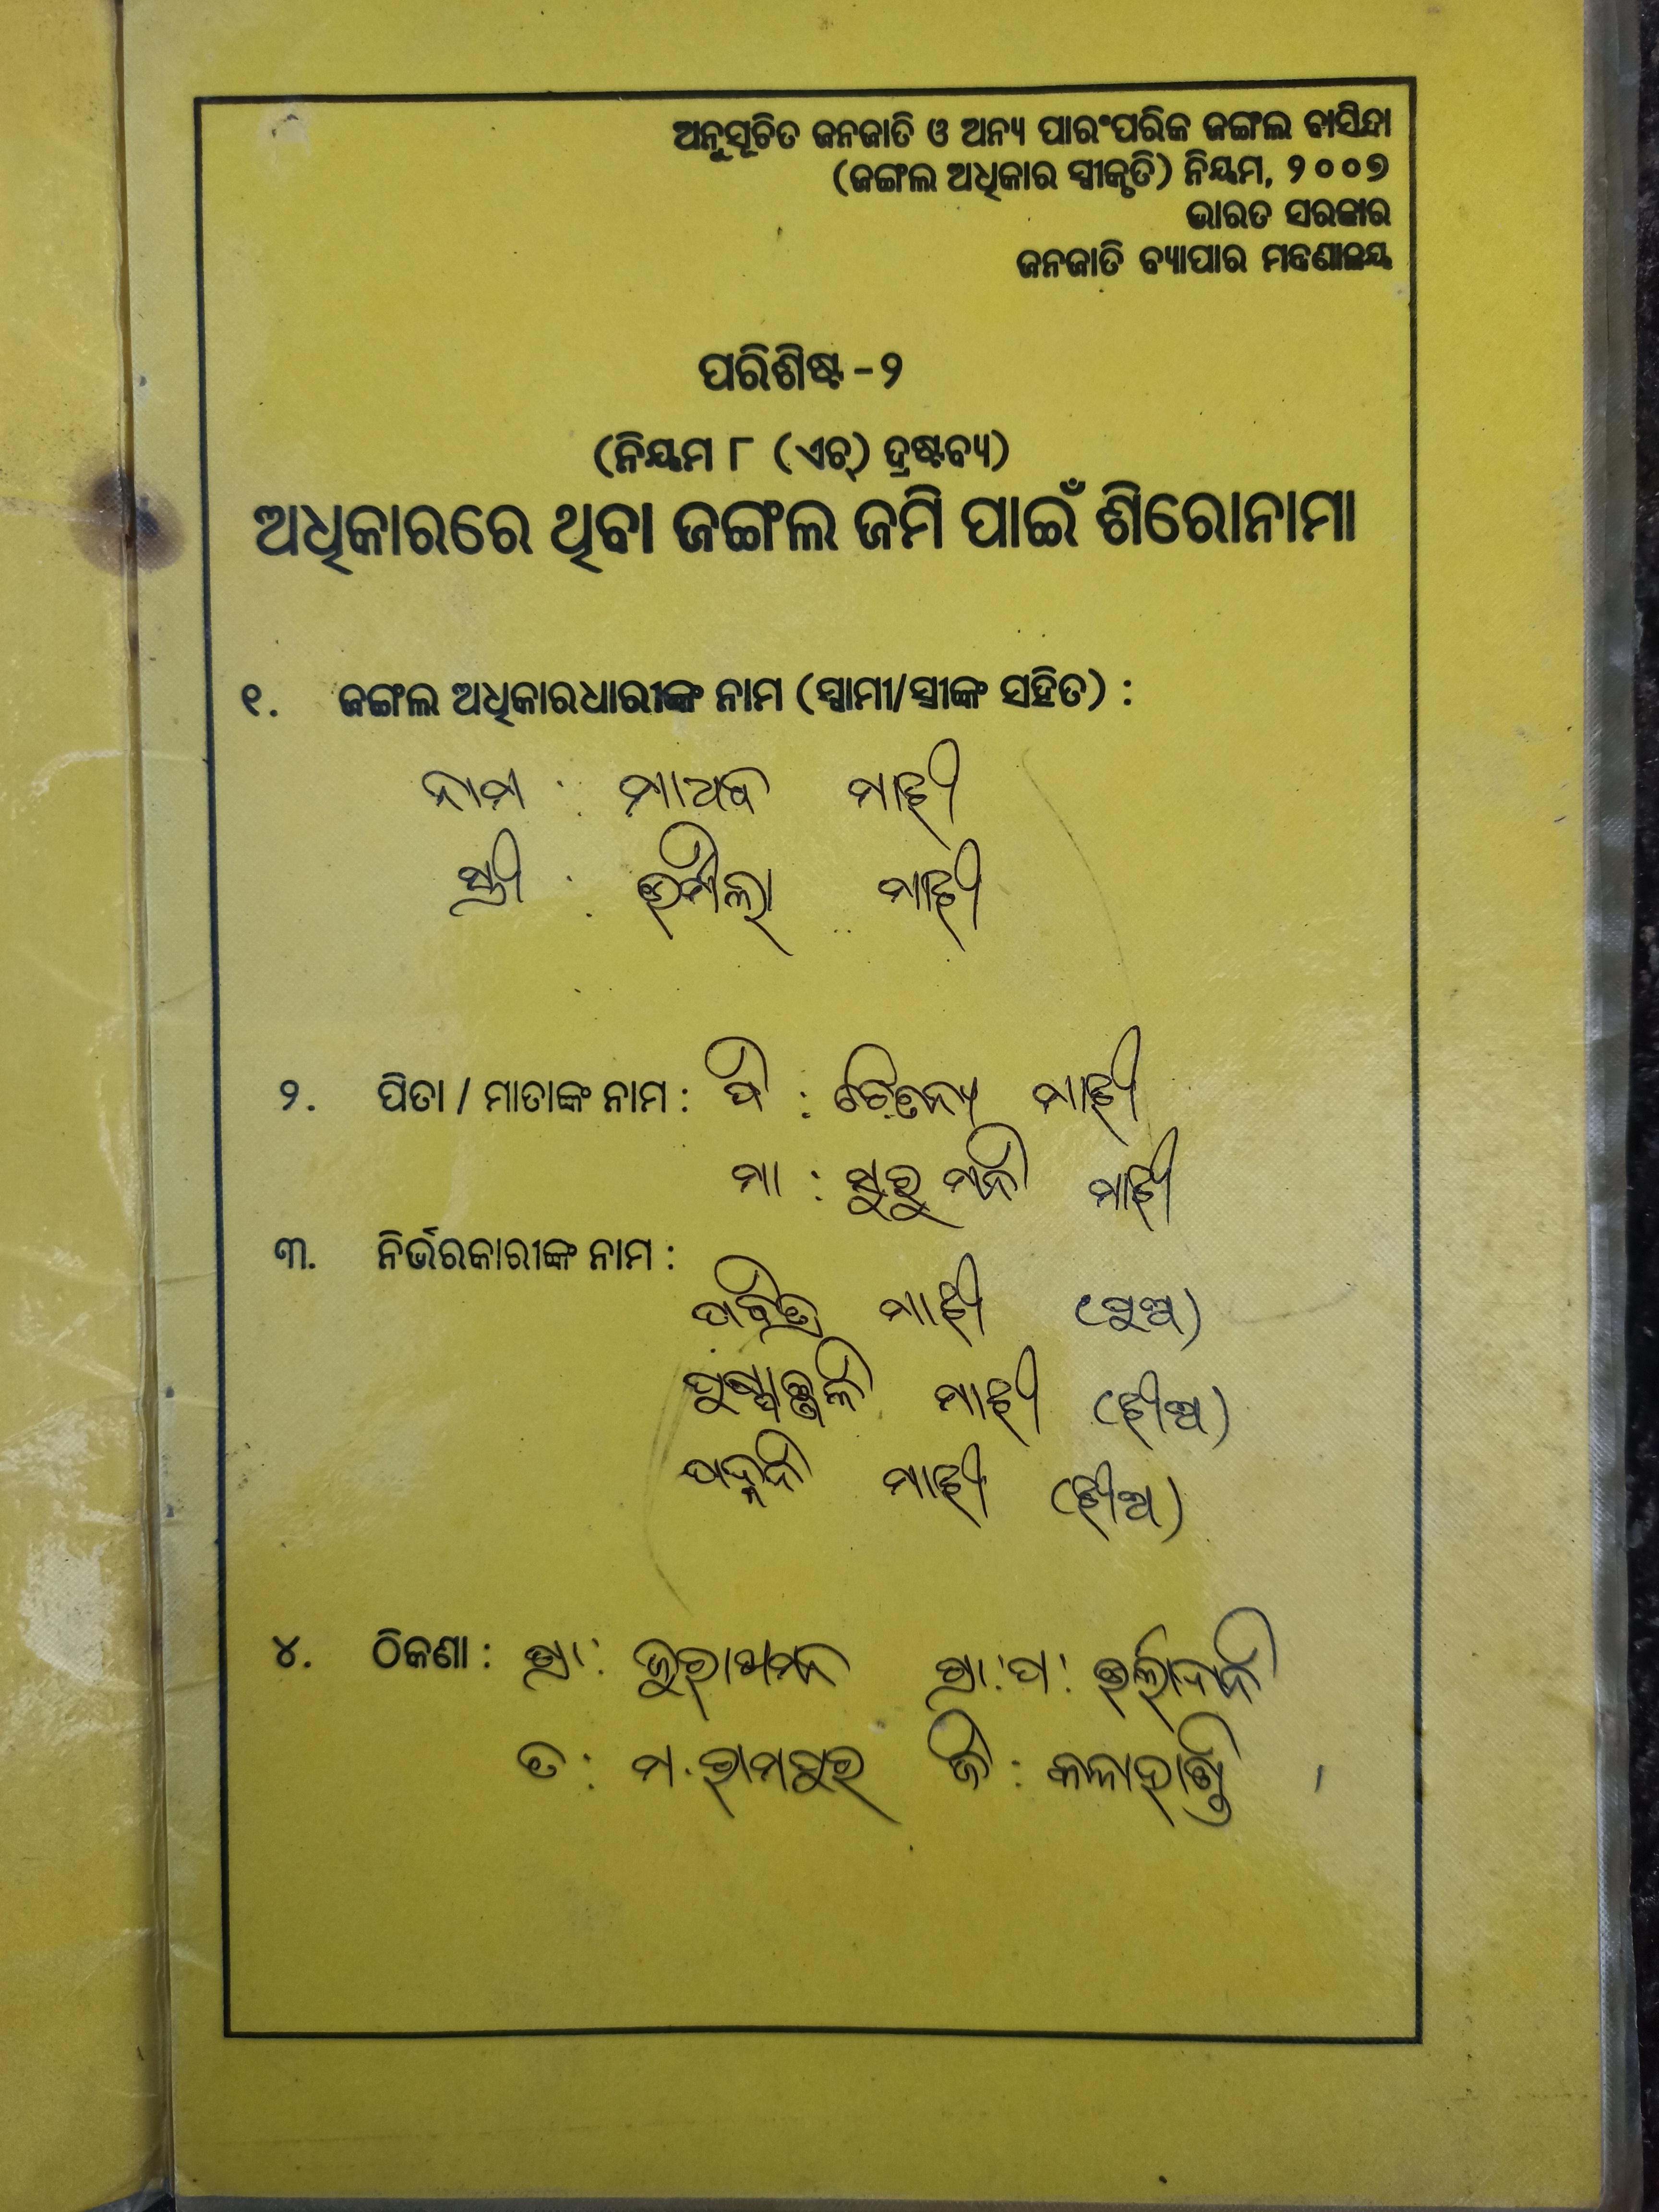 ଅନୁସୂଚିତ ଜନଜାତି ଓ ଅନ୍ୟ ପାରଂପରିକ ଜଙ୍ଗଲ ବାସିନ୍ଦା
(ଜଙ୍ଗଲ ଅଧିକାର ସ୍ୱୀକୃତି) ନିୟମ, ୨୦୦୭
ଭାରତ ସରକାର
ଜନଜାତି ବ୍ୟାପାର ମନ୍ତ୍ରଣାଳୟ
ପରିଶିଷ୍ଟ - ୨
(ନିୟମ ୮ (ଏଚ୍) ଦ୍ରଷ୍ଟବ୍ୟ)
ଅଧିକାରରେ ଥିବା ଜଙ୍ଗଲ ଜମି ପାଇଁ ଶିରୋନାମା
୧. ଜଙ୍ଗଲ ଅଧିକାରଧାରୀଙ୍କ ନାମ (ସ୍ୱାମୀ/ସ୍ତ୍ରୀଙ୍କ ସହିତ) :
ନାମ : ମାଧବ ମାଝୀ
ସ୍ତ୍ରୀ : ଊର୍ମିଳା ମାଝୀ
୨. ପିତା / ମାତାଙ୍କ ନାମ : ପି : ଚୈତନ୍ୟ ମାଝୀ
ମା : ସୁରୁମନି ମାଝୀ
୩. ନିର୍ଭରକାରୀଙ୍କ ନାମ :
ପବିତ୍ର ମାଝୀ (ପୁଅ)
ପୁଷ୍ପାଞ୍ଜଳି ମାଝୀ (ଝୀଅ)
ପଦ୍ମନି ମାଝୀ (ଝୀଅ)
୪. ଠିକଣା : ଗ୍ରା : ଗ୍ରା : ପ :
ତ : ମ.ରାମପୁର ଜି : କଳାହାଣ୍ଡି